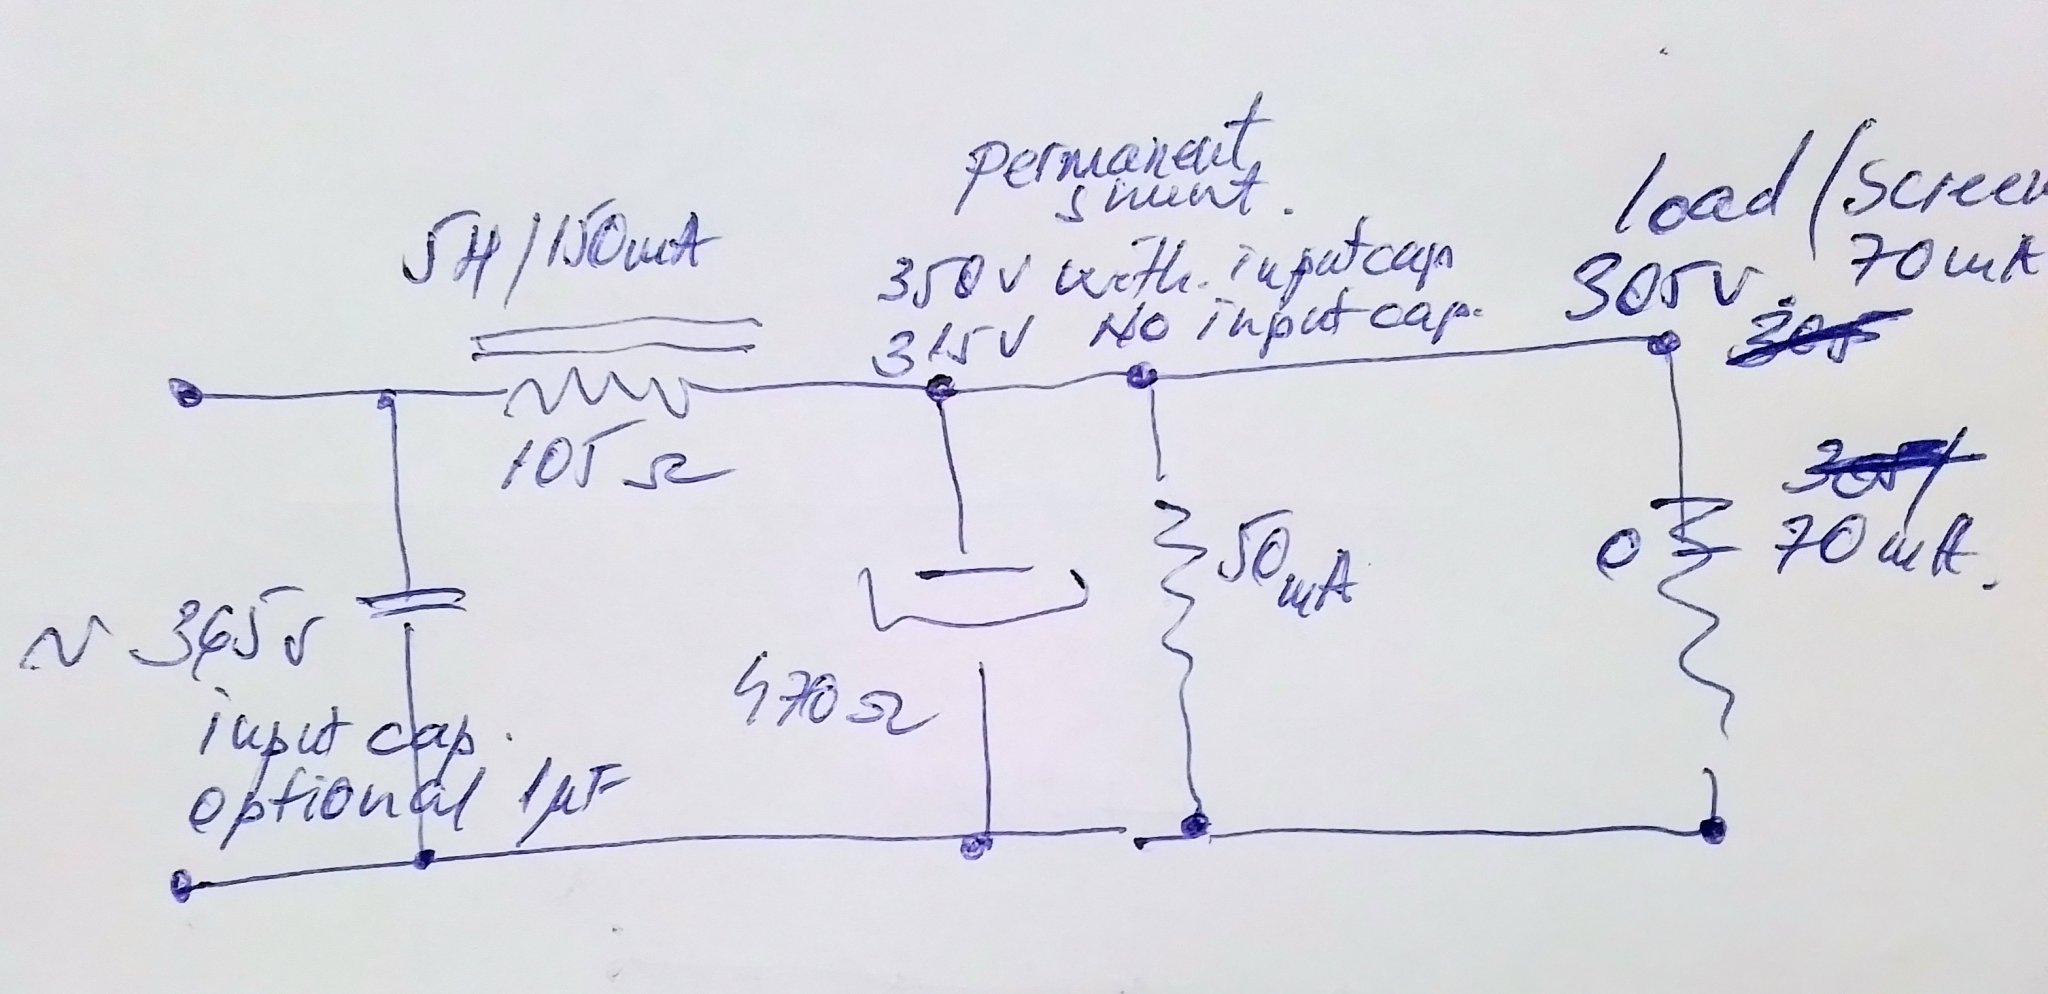 permanent
shunt.
350V with input cap
315V NO input cap.
load/screen
305V. 70mA
305
5H/150mA
105Ω
50mA
305/
70mA.
~ 365V
input cap.
optional 1µF
470Ω